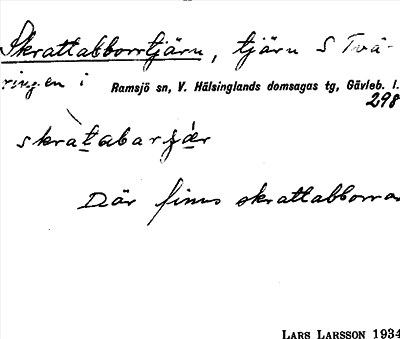 Skrattabborrtjärn, tjärn S Tvä-
ringen i Ramsjö sn, V. Hälsinglands domsagas tg, Gävleb. l.
298
skràtabarʒæ̀r
Där finns skrattabborrar
LARS LARSSON 1934